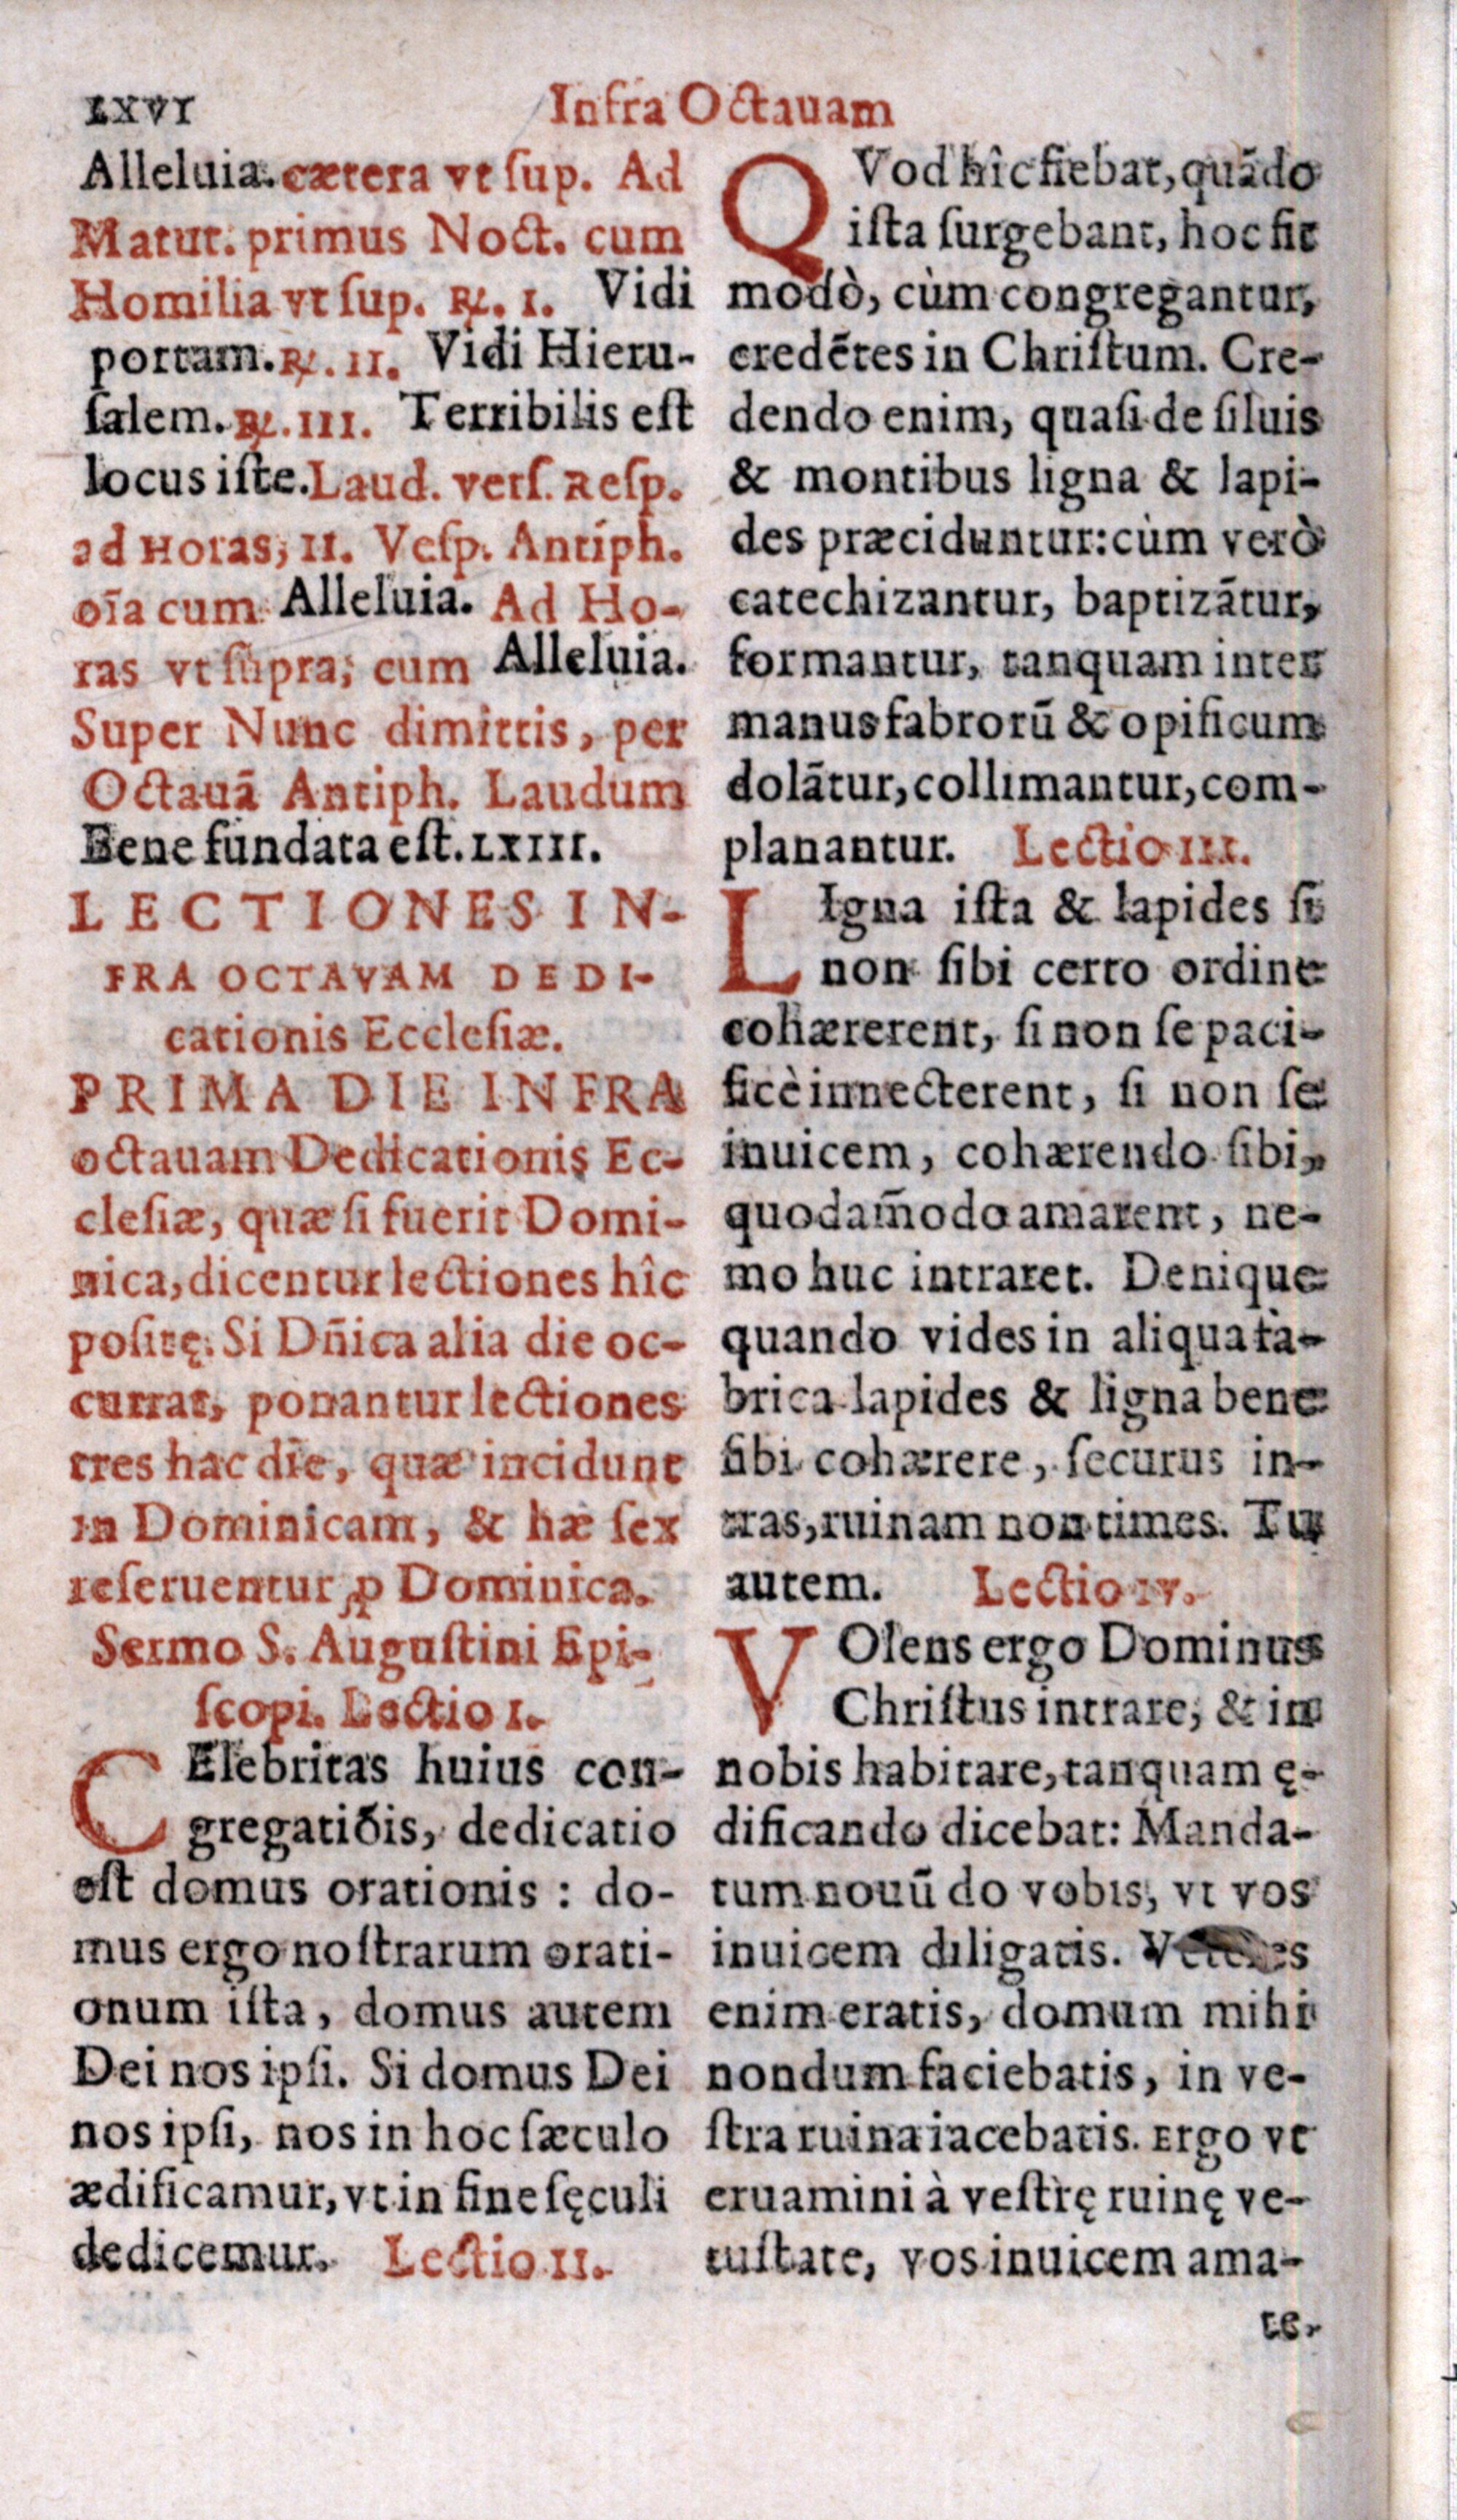 LXVI
Infra Octauam
Alleluia. cætera vt ſup. Ad
Matut. primus Noct. cum
Homilia vt ſup. ℟. I. Vidi
portam. ℟. II. Vidi Hieru-
ſalem. ℟. III. Terribilis eſt
locus iſte. Laud. verſ. Reſp.
ad Horas, II. Veſp. Antiph.
oīa cum Alleluia. Ad Ho-
ras vt ſupra, cum Alleluia.
Super Nunc dimittis, per
Octauā Antiph. Laudum
Bene fundata eſt. LXIII.
LECTIONES IN-
FRA OCTAVAM DEDI-
cationis Eccleſiæ.
PRIMA DIE INFRA
octauam Dedicationis Ec-
cleſiæ, quæ ſi fuerit Domi-
nica, dicentur lectiones hîc
poſitę. Si Dñica alia die oc-
currat, ponantur lectiones
tres hac die, quæ incidunt
in Dominicam, & hæ ſex
reſeruentur ꝓ Dominica.
Sermo S. Auguſtini Epi-
ſcopi. Lectio I.
CElebritas huius con-
gregatiōis, dedicatio
eſt domus orationis : do-
mus ergo noſtrarum orati-
onum iſta, domus autem
Dei nos ipſi. Si domus Dei
nos ipſi, nos in hoc ſæculo
ædificamur, vt in fine ſęculi
dedicemur. Lectio II.
QVod hîc fiebat, quādo
iſta ſurgebant, hoc fit
modò, cùm congregantur,
credētes in Chriſtum. Cre-
dendo enim, quaſi de ſiluis
& montibus ligna & lapi-
des præciduntur: cùm verò
catechizantur, baptizātur,
formantur, tanquam inter
manus fabrorū & opificum
dolātur, collimantur, com-
planantur. Lectio III.
LIgna iſta & lapides ſi
non ſibi certo ordine
cohærerent, ſi non ſe paci-
ficè innecterent, ſi non ſe
inuicem, cohærendo ſibi,
quodam̃odo amarent, ne-
mo huc intraret. Denique
quando vides in aliqua fa-
brica lapides & ligna bene
ſibi cohærere, ſecurus in-
tras, ruinam non times. Tu
autem. Lectio IV.
VOlens ergo Dominus
Chriſtus intrare, & in
nobis habitare, tanquam ę-
dificando dicebat: Manda-
tum nouū do vobis, vt vos
inuicem diligatis. Veteres
enim eratis, domum mihi
nondum faciebatis, in ve-
ſtra ruina iacebatis. Ergo vt
eruamini à veſtrę ruinę ve-
tuſtate, vos inuicem ama-
te.